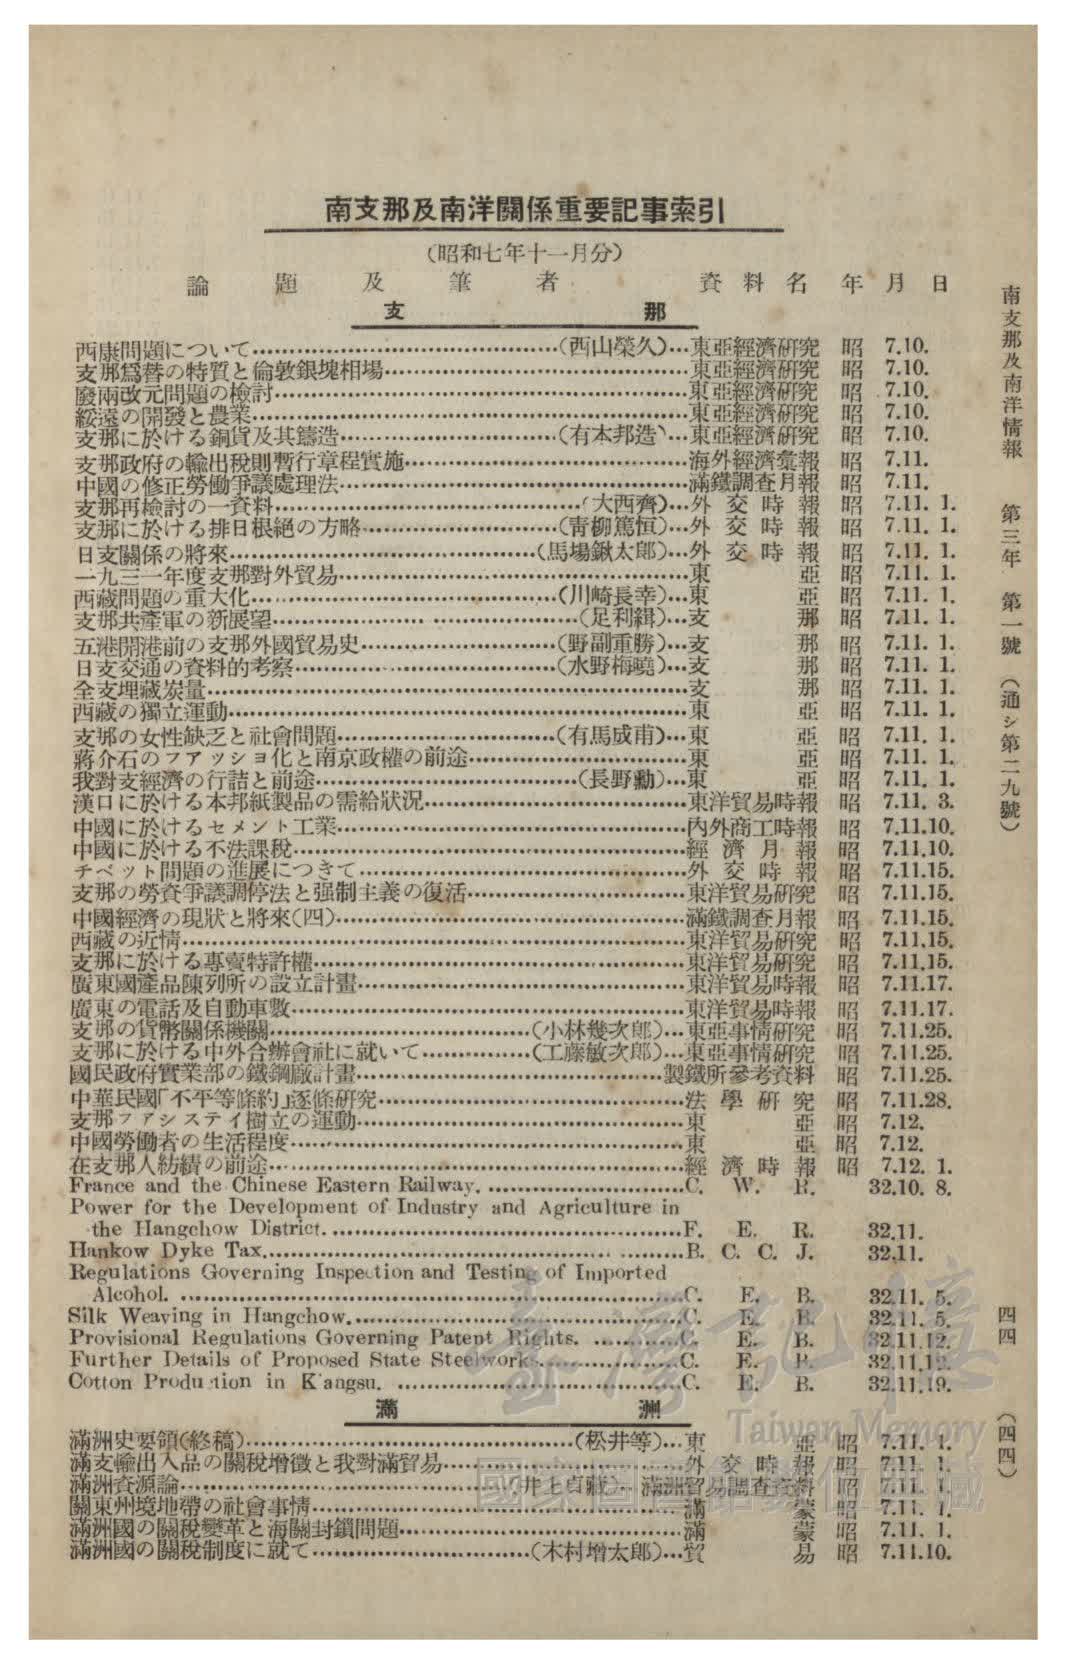 南支那及南洋關係重要記事索引
（昭和七年十一月分）
論題及筆者 資料名 年月日
支那
西康問題について……（西山榮久）…東亞經濟研究 昭 7.10.
支那爲替の特質と倫敦銀塊相場……東亞經濟研究 昭 7.10.
廢兩改元問題の檢討……東亞經濟研究 昭 7.10.
綏遠の開發と農業……東亞經濟研究 昭 7.10.
支那に於ける銅貨及其鑄造……（有本邦造）…東亞經濟研究 昭 7.10.
支那政府の輸出稅則暫行章程實施……海外經濟彙報 昭 7.11.
中國の修正勞働爭議處理法……滿鐵調査月報 昭 7.11.
支那再檢討の一資料……（大西齊）…外交時報 昭 7.11. 1.
支那に於ける排日根絕の方略……（青柳篤恒）…外交時報 昭 7.11. 1.
日支關係の將來……（馬場鍬太郞）…外交時報 昭 7.11. 1.
一九三一年度支那對外貿易……東亞 昭 7.11. 1.
西藏問題の重大化……（川崎長幸）…東亞 昭 7.11. 1.
支那共產軍の新展望……（足利緝）…支那 昭 7.11. 1.
五港開港前の支那外國貿易史……（野副重勝）…支那 昭 7.11. 1.
日支交通の資料的考察……（水野梅曉）…支那 昭 7.11. 1.
全支埋藏炭量……支那 昭 7.11. 1.
西藏の獨立運動……東亞 昭 7.11. 1.
支那の女性缺乏と社會問題……（有馬成甫）…東亞 昭 7.11. 1.
蔣介石のファッショ化と南京政權の前途……東亞 昭 7.11. 1.
我對支經濟の行詰と前途……（長野勳）…東亞 昭 7.11. 1.
漢口に於ける本邦紙製品の需給狀況……東洋貿易時報 昭 7.11. 3.
中國に於けるセメント工業……內外商工時報 昭 7.11.10.
中國に於ける不法課稅……經濟月報 昭 7.11.10.
チベット問題の進展につきて……外交時報 昭 7.11.15.
支那の勞資爭議調停法と强制主義の復活……東洋貿易研究 昭 7.11.15.
中國經濟の現狀と將來(四)……滿鐵調査月報 昭 7.11.15.
西藏の近情……東洋貿易研究 昭 7.11.15.
支那に於ける專賣特許權……東洋貿易研究 昭 7.11.15.
廣東國產品陳列所の設立計畫……東洋貿易時報 昭 7.11.17.
廣東の電話及自動車數……東洋貿易時報 昭 7.11.17.
支那の貨幣關係機關……（小林幾次郞）…東亞事情研究 昭 7.11.25.
支那に於ける中外合辦會社に就いて……（工藤敏次郞）…東亞事情研究 昭 7.11.25.
國民政府實業部の鐵鋼廠計畫……製鐵所參考資料 昭 7.11.25.
中華民國「不平等條約」逐條研究……法學研究 昭 7.11.28.
支那ファシスティ樹立の運動……東亞 昭 7.12.
中國勞働者の生活程度……東亞 昭 7.12.
在支那人紡績の前途……經濟時報 昭 7.12. 1.
France and the Chinese Eastern Railway. ……C. W. R. 32.10. 8.
Power for the Development of Industry and Agriculture in
the Hangchow District. ……F. E. R. 32.11.
Hankow Dyke Tax.……B. C. C. J. 32.11.
Regulations Governing Inspection and Testing of Imported
Alcohol. ……C. E. B. 32.11. 5.
Silk Weaving in Hangchow.……C. E. B. 32.11. 5.
Provisional Regulations Governing Patent Rights. ……C. E. B. 32.11.12.
Further Details of Proposed State Steelworks.……C. E. B. 32.11.12.
Cotton Production in Kiangsu. ……C. E. B. 32.11.19.
滿洲
滿洲史要領(終稿)……（松井等）…東亞 昭 7.11. 1.
滿支輸出入品の關稅增徵と我對滿貿易……外交時報 昭 7.11. 1.
滿洲資源論……（井上貞藏）…滿洲貿易調査資料 昭 7.11. 1.
關東州境地帶の社會事情……滿蒙 昭 7.11. 1.
滿洲國の關稅變革と海關封鎖問題……滿蒙 昭 7.11. 1.
滿洲國の關稅制度に就て……（木村增太郞）…貿易 昭 7.11.10.
南支那及南洋情報 第三年 第一號 （通シ第二九號）
四四
（四四）
臺灣記憶
Taiwan Memory
國家圖書館數位典藏